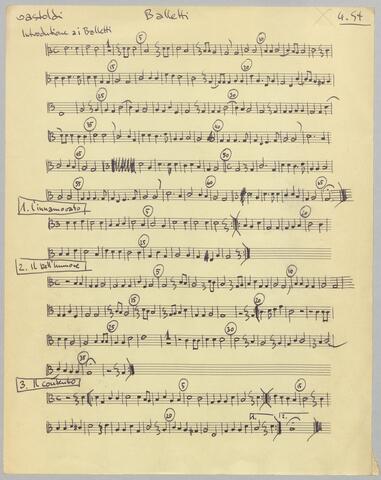 Gastoldi Balletti 4.54
Introduzione a i Balletti
5 10
15 20
25 30
35 40
45 50
55 60 65
1. L'innamorato
5 10
15
2. Il bell'humore
5 10
15 20
25 30
35
3. Il contento
5 15
20 1. 2.